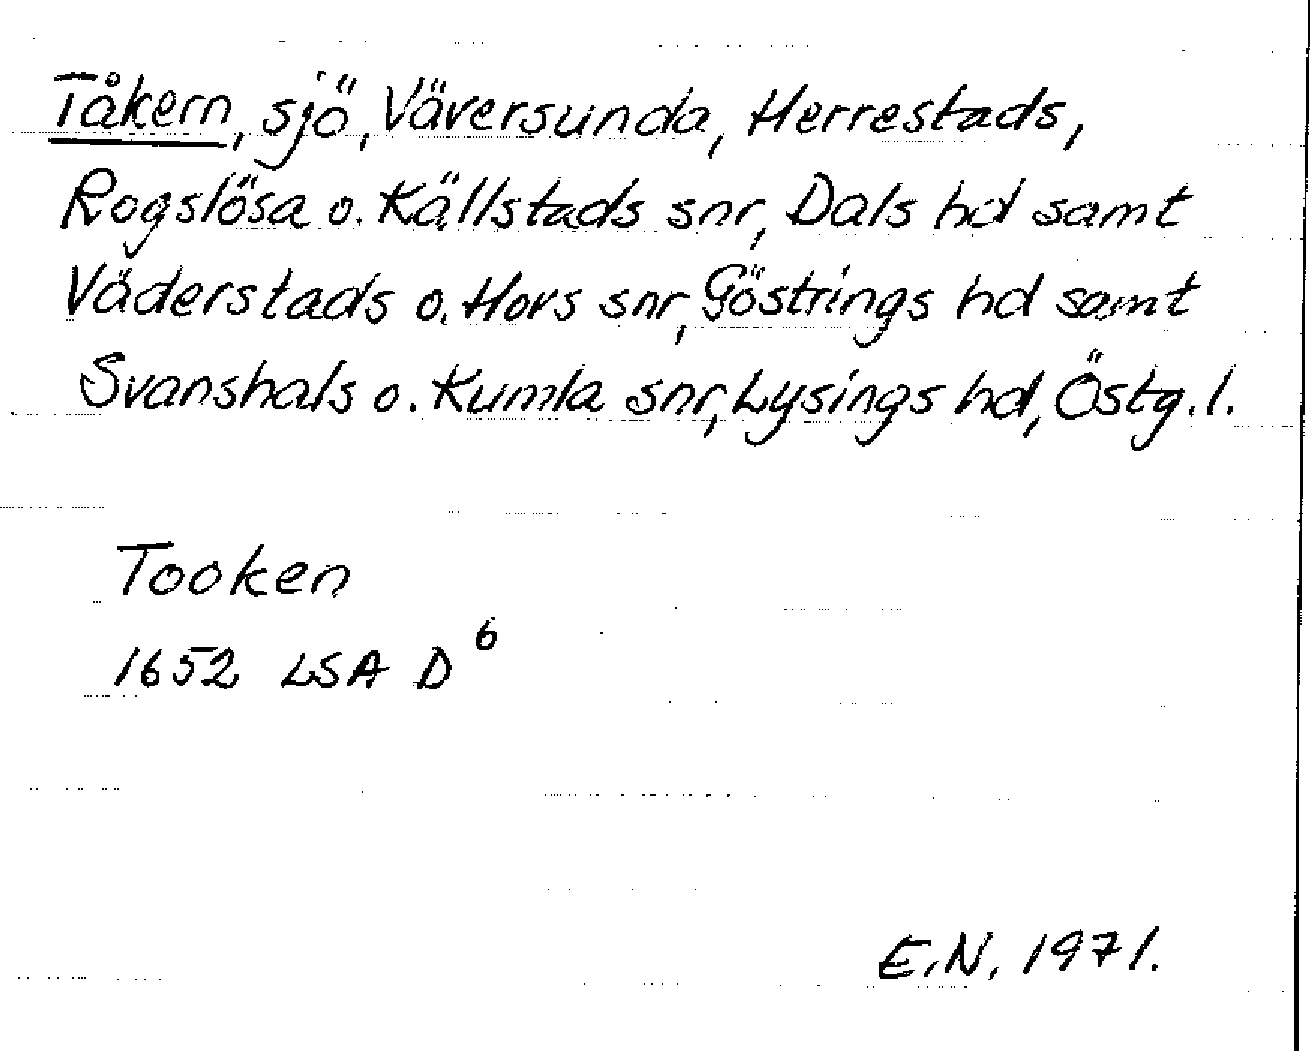 Tåkern, sjö, Väversunda, Herrestads,
Rogslösa o. Källstads snr, Dals hd samt
Väderstads o. Hovs snr, Göstrings hd samt
Svanshals o. Kumla snr, Lysings hd, Östg.l.
Tooken
1652 LSA D⁶
E.N. 1971.